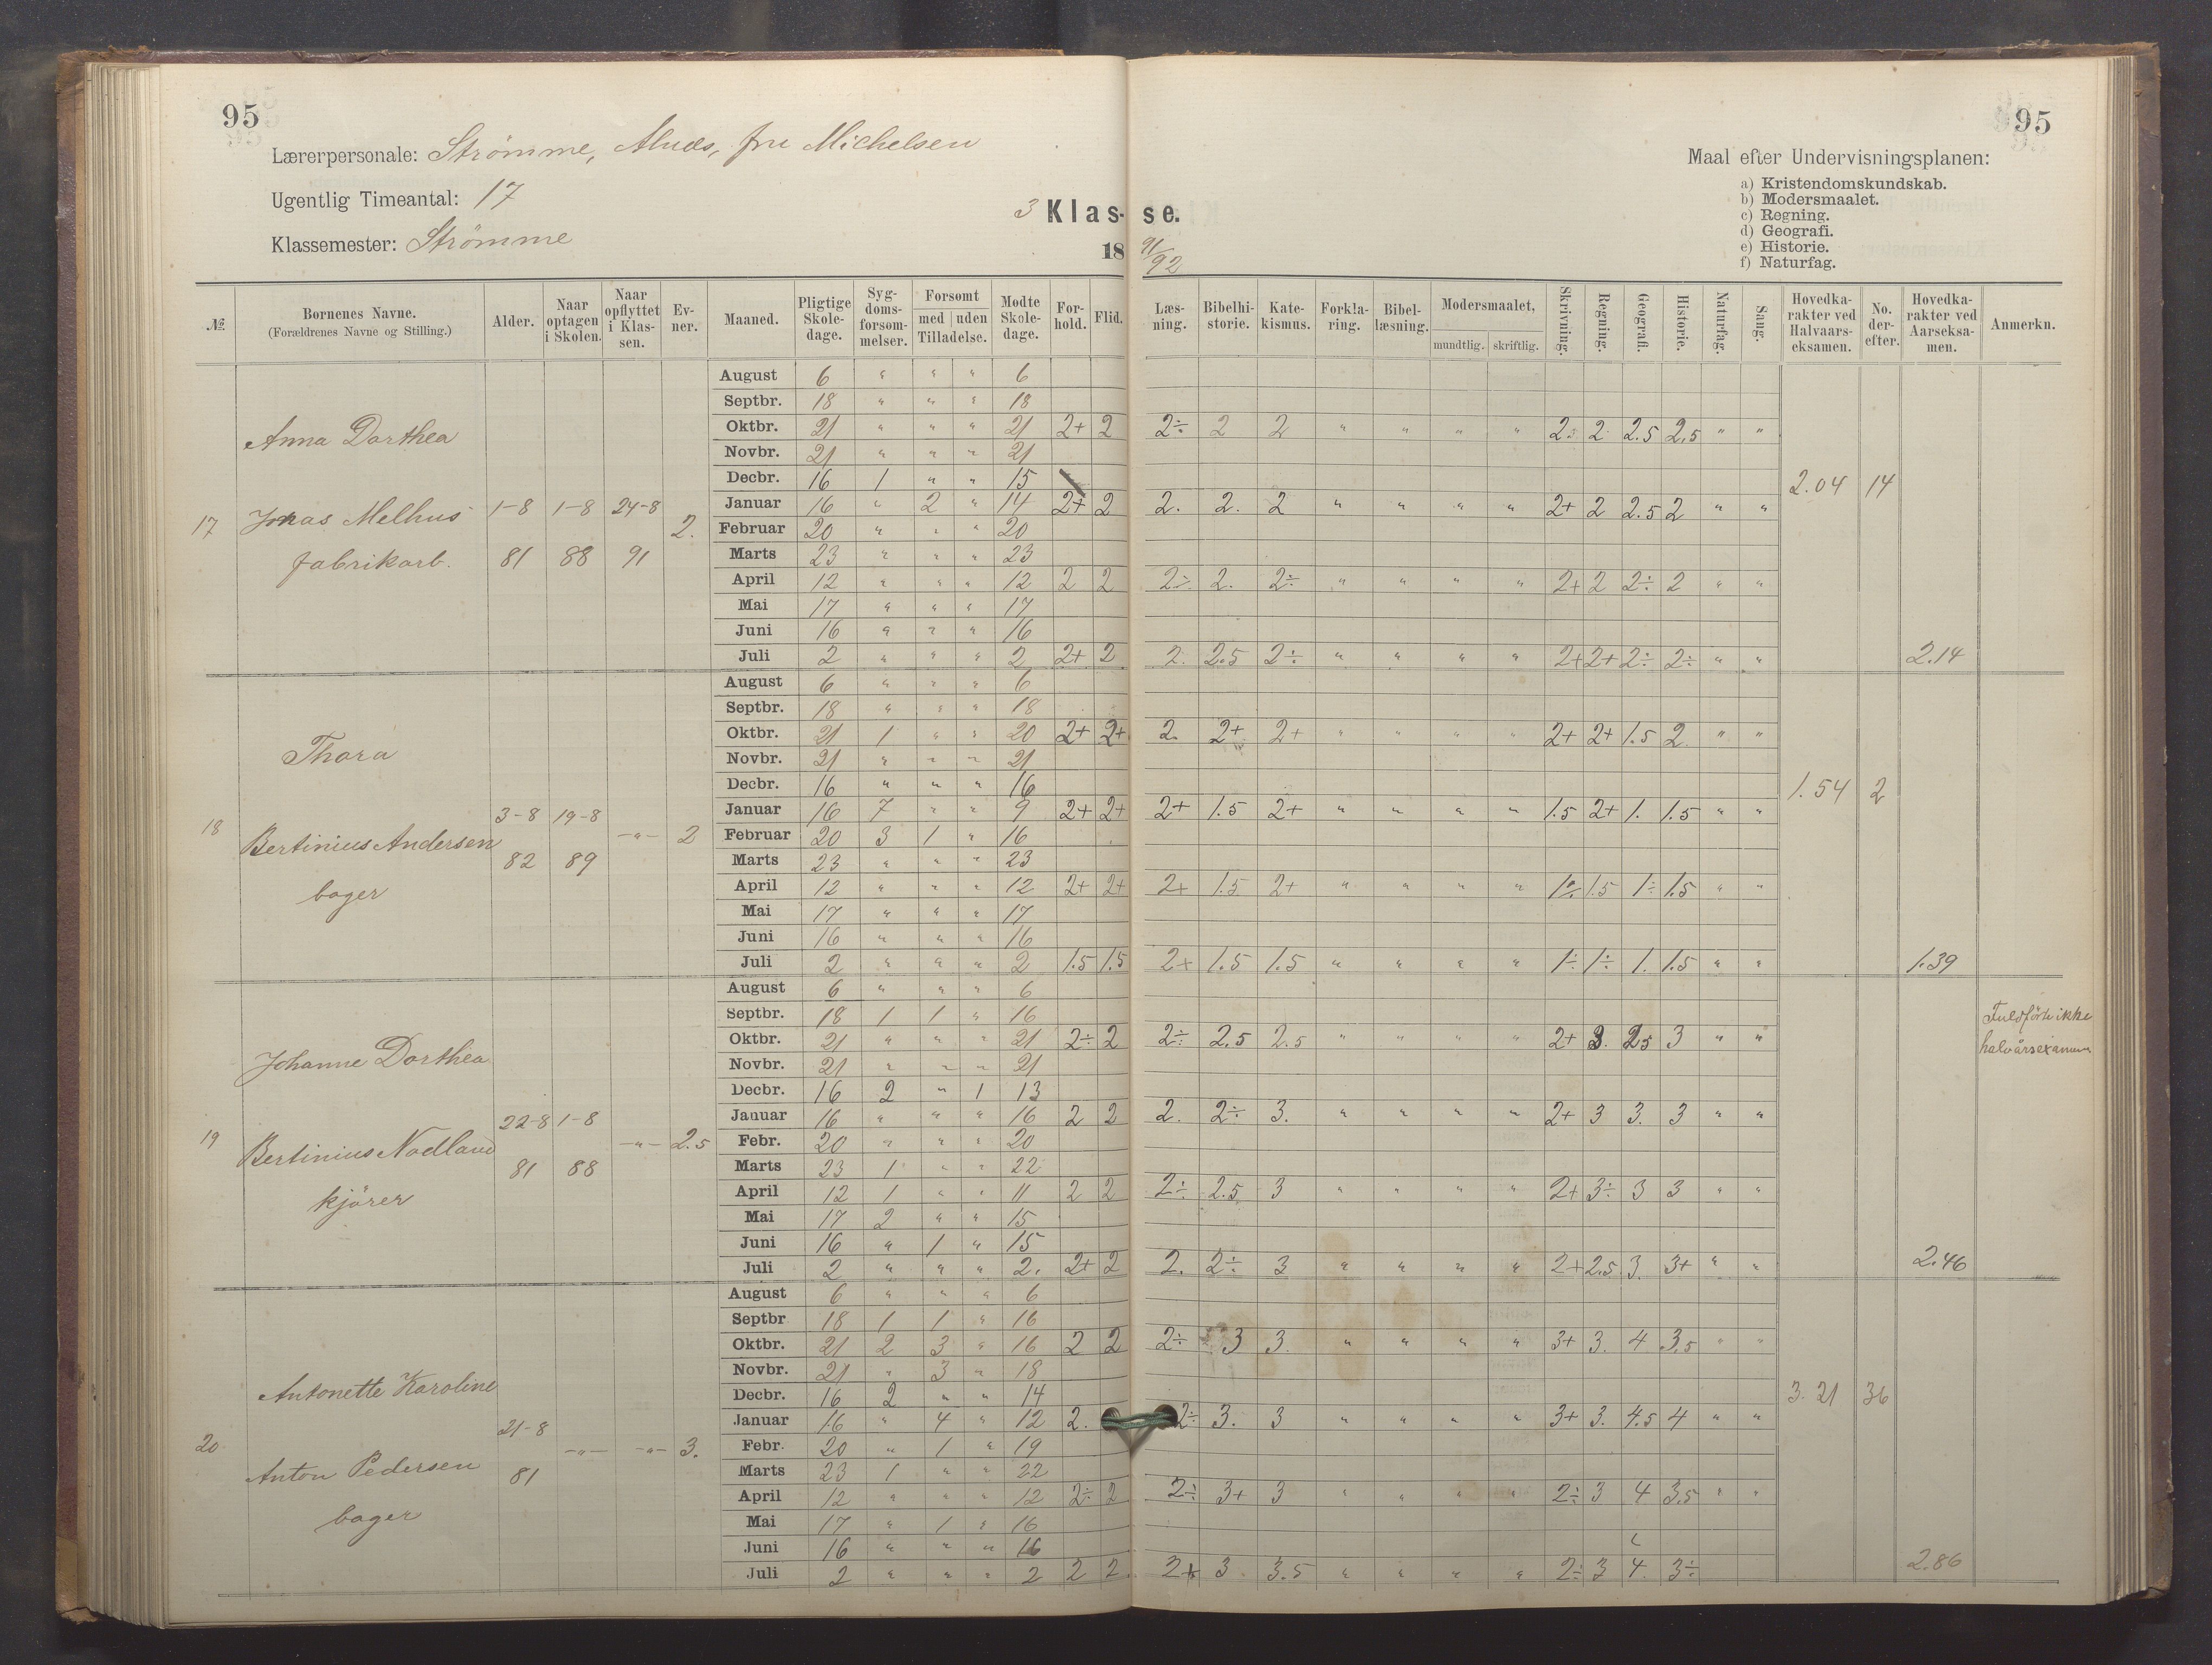 95
95
Lærerpersonale: Strömme, fru Michelsen
Ugentlig Timeantal: 17
Klassemester: Strömme
3 Klas- se.
18 91/92
Maal efter Undervisningsplanen:
a) Kristendomskundskab.
b) Modersmaalet.
c) Regning.
d) Geografi.
e) Historie.
f) Naturfag.
№ Børnenes Navne. (Forældrenes Navne og Stilling.) Alder. Naar optagen i Skolen. Naar opflyttet i Klassen. Evner. Maaned. Pligtige Skoledage. Sygdomsforsømmelser. Forsømt med uden Tilladelse. Mødte Skoledage. Forhold. Flid. Læsning. Bibelhistorie. Katekismus. Forklaring. Bibellæsning. Modersmaalet, mundtlig. skriftlig. Skrivning. Regning. Geografi. Historie. Naturfag. Sang. Hovedkarakter ved Halvaarseksamen. No. derefter. Hovedkarakter ved Aarseksamen. Anmerkn.
17 Anna Dorthea
Jonas Melhus
fabrikarb.
1-8 81 1-8 88 24-8 91 2.
August 6 " " " 6
Septbr. 18 " " " 18
Oktbr. 21 " " " 21 2+ 2 2÷ 2 2 " " " " 2÷ 2 2.5 2.5 " "
Novbr. 21 " " " 21
Decbr. 16 1 " " 15 2.04 14
Januar 16 " 2 " 14 2+ 2 2. 2. 2 " " " " 2+ 2 2.5 2 " "
Februar 20 " " " 20
Marts 23 " " " 23
April 12 " " " 12 2 2 2÷ 2. 2÷ " " " " 2+ 2 2÷ 2 " "
Mai 17 " " " 17
Juni 16 " " " 16
Juli 2 " " " 2 2+ 2 2. 2.5 2÷ " " " " 2+ 2+ 2÷ 2÷ " " 2.14
18 Thora
Bertinius Andersen
bager
3-8 82 19-8 89 -"- 2
August 6 " " " 6
Septbr. 18 " " " 18
Oktbr. 21 1 " " 20 2+ 2+ 2. 2+ 2+ " " " " 2+ 2+ 1.5 2 " "
Novbr. 21 " " " 21
Decbr. 16 " " " 16 1.54 2
Januar 16 7 " " 9 2+ 2+ 2+ 1.5 2+ " " " " 1.5 2+ 1. 1.5 " "
Februar 20 3 1 " 16
Marts 23 " " " 23
April 12 " " " 12 2+ 2+ 2+ 1.5 2+ " " " " 1÷ 1.5 1÷ 1.5 " "
Mai 17 " " " 17
Juni 16 " " " 16
Juli 2 " " " 2 1.5 1.5 2+ 1.5 1.5 " " " " 1÷ 1÷ 1. 1.5 " " 1.39
19 Johanne Dorthea
Bertinius Nodland
kjörer
22-8 81 1-8 88 -"- 2.5
August 6 " " " 6
Septbr. 18 1 1 " 16 Fuldförte ikke
halvårsexamen
Oktbr. 21 " " " 21 2÷ 2 2÷ 2.5 2.5 " " " " 2+ 3. 2.5 3 " "
Novbr. 21 " " " 21
Decbr. 16 2 " 1 13
Januar 16 " " " 16 2 2 2. 2÷ 3. " " " " 2+ 3 3. 3 " "
Febr. 20 " " " 20
Marts 23 1 " " 22
April 12 1 " " 11 2 2 2÷ 2.5 3 " " " " 2+ 3÷ 3 3 " "
Mai 17 2 " " 15
Juni 16 " 1 " 15
Juli 2 " " " 2. 2+ 2 2. 2÷ 3 " " " " 2+ 2.5 3. 3+ " " 2.46
20 Antonette Karoline
Anton Pedersen
bager
21-8 81 -"- -"- 3.
August 6 " " " 6
Septbr 18 1 1 " 16
Oktbr. 21 2 3 " 16 2 2 2÷ 3 3. " " " " 3+ 3. 4 3.5 " "
Novbr. 21 " 3 " 18
Decbr. 16 2 " " 14 3.21 36
Januar 16 " 4 " 12 2. 2÷ 3. 3 " " " " 3+ 3. 4.5 4 " "
Febr. 20 " 1 " 19
Marts 23 1 " " 22
April 12 " " " 12 2÷ 2 2÷ 3+ 3 " " " " 2÷ 3 4 3.5 " "
Mai 17 " 1 " 16
Juni 16 " " " 16
Juli 2 " " " 2 2 2 2+ 3 3.5 " " " " 2÷ 3 4. 3÷ 2.86